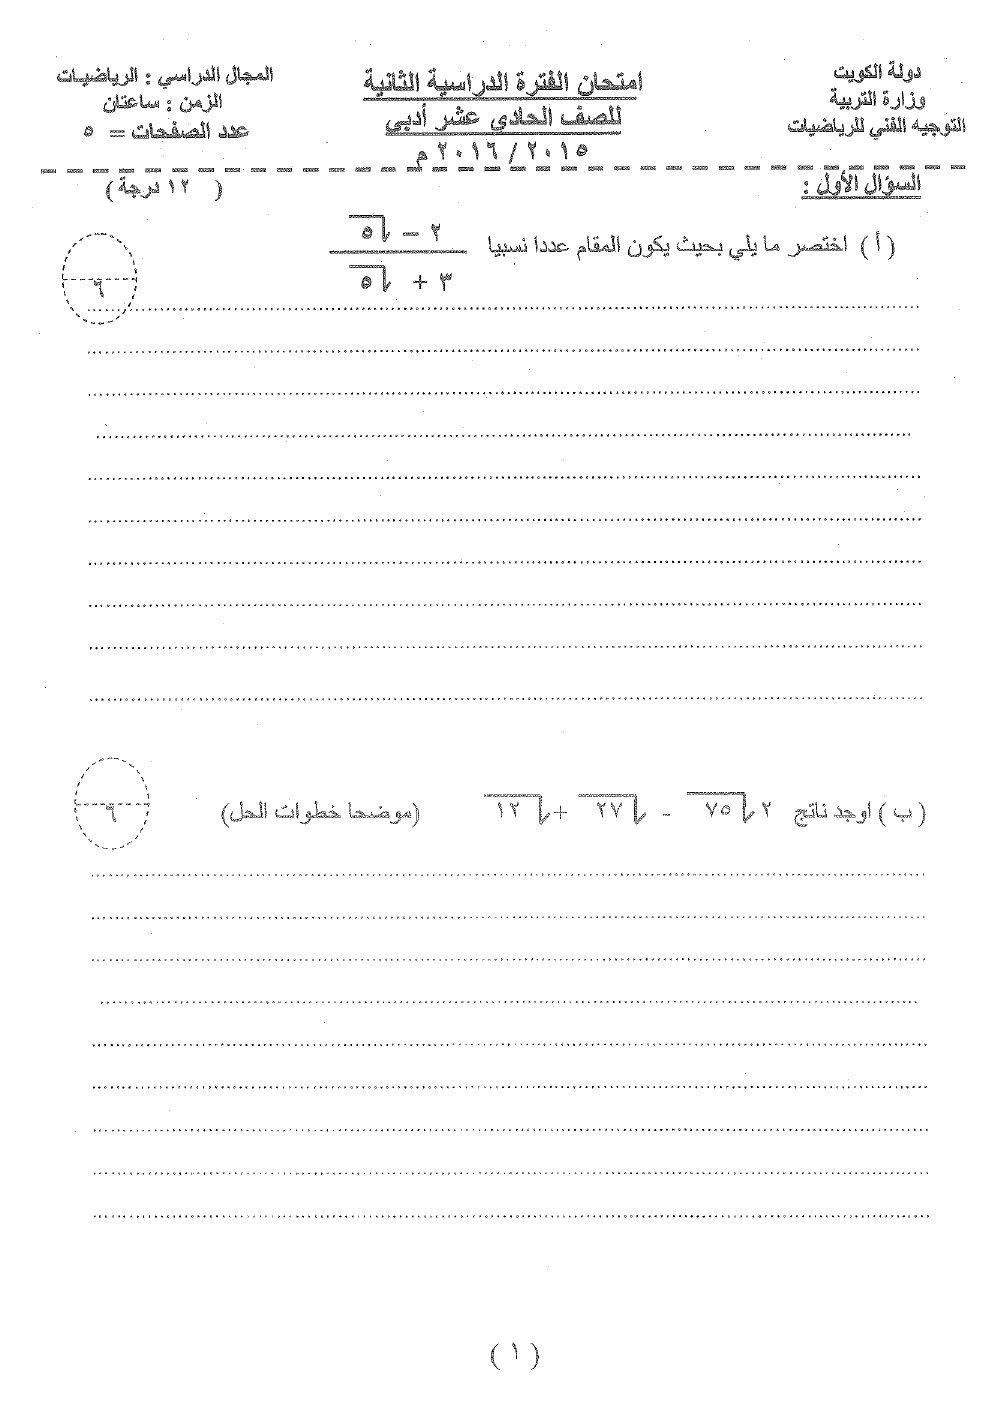 دولة الكويت
وزارة التربية
التوجيه الفني للرياضيات
امتحان الفترة الدراسية الثانية
للصف الحادي عشر أدبي
٢٠١٥ / ٢٠١٦ م
المجال الدراسي : الرياضيات
الزمن : ساعتان
عدد الصفحات = ٥
السؤال الأول : ( ١٢ درجة )
( أ ) اختصر ما يلي بحيث يكون المقام عددا نسبيا
٢ – √٥
٣ + √٥
٦
( ب ) اوجد ناتج ٢ √٧٥ - √٢٧ + √١٢ (موضحا خطوات الحل)
٦
( ١ )